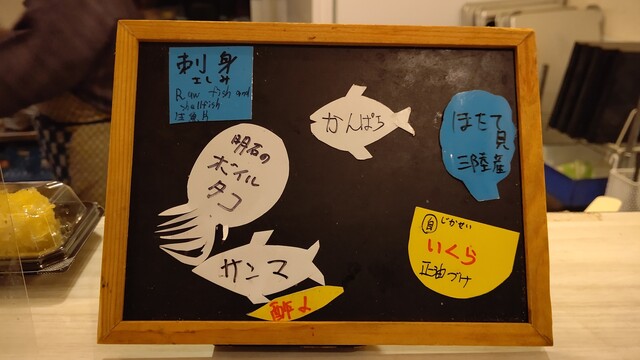 刺身
さしみ
Raw fish and
shellfish
かんぱち
ほたて貝
三陸産
明石の
ボイル
タコ
自 じかせい
いくら
正油づけ
サンマ
酢〆